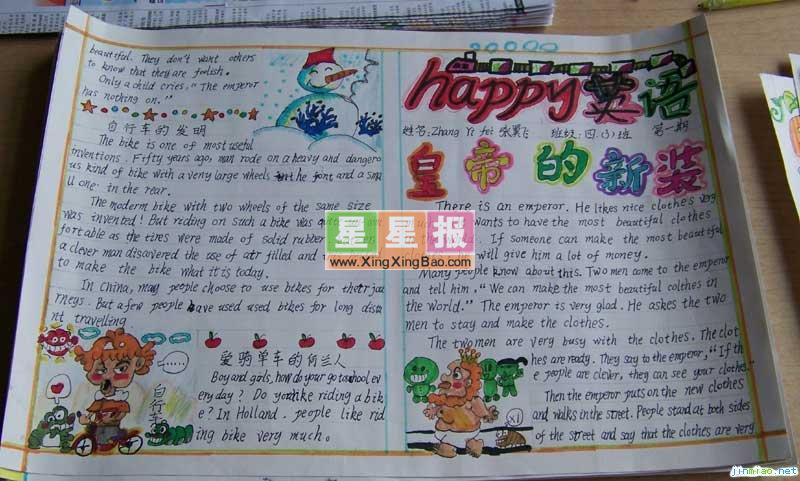 happy英语
姓名:Zhang Yi fei 张翼飞 班级:四(3)班 第一期
皇帝的新装
There is an emperor. He likes nice clothes very
wants to have the most beautiful clothes
If someone can make the most beautiful
will give him a lot of money.
Many people know about this. Two men come to the emperor
and tell him. "We can make the most beautiful colthes in
the world." The emperor is very glad. He askes the two
men to stay and make the clothes.
The two men are very busy with the clothes. The clot
hes are ready. They say to the emperor, "If th
e people are clever, they can see your clothes."
Then the emperor puts on the new clothes
and walks in the street. People stand at both sides
of the street and say that the clothes are very
beautiful. They don't want others
to know that they are foolish.
Only a child cries, "The emperor
has nothing on."
自行车的发明
The bike is one of most useful
inventions. Fifty years ago, man rode on a heavy and dangero
us kind of bike with a very large wheels the font and a sma
ll one in the rear.
The moderm bike with two wheels of the same size
was invented! But riding on such a bike was
fortable as the tires were made of solid rubber
a clever man discovered the use of air filled
to make the bike what it is today.
In China, many people choose to use bikes for their jou
rneys. But a few people have used used bikes for long dista
nt travelling
爱骑单车的荷兰人
Boy and girls, how do your go to school ev
ery day? Do you like riding a bik
e? In Holland. people like rid
ing bike very much.
自行车
x1
星星报
www.XingXingBao.com
jinmiao.net